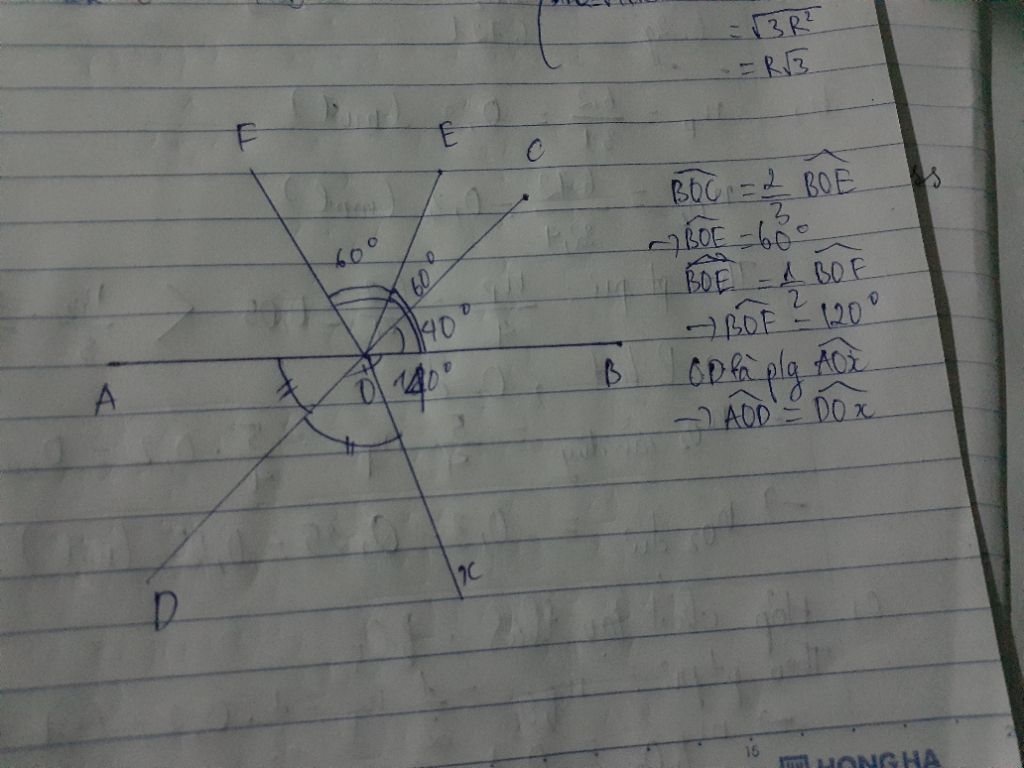 = √3R²
= R√3
F E C
60° 60°
40°
A O 140° B
D x
BOC = 2/3 BOE
→ BOE = 60°
BOE = 1/2 BOF
→ BOF = 120°
OD là p/g AOx
→ AOD = DOx
15
HONG HA